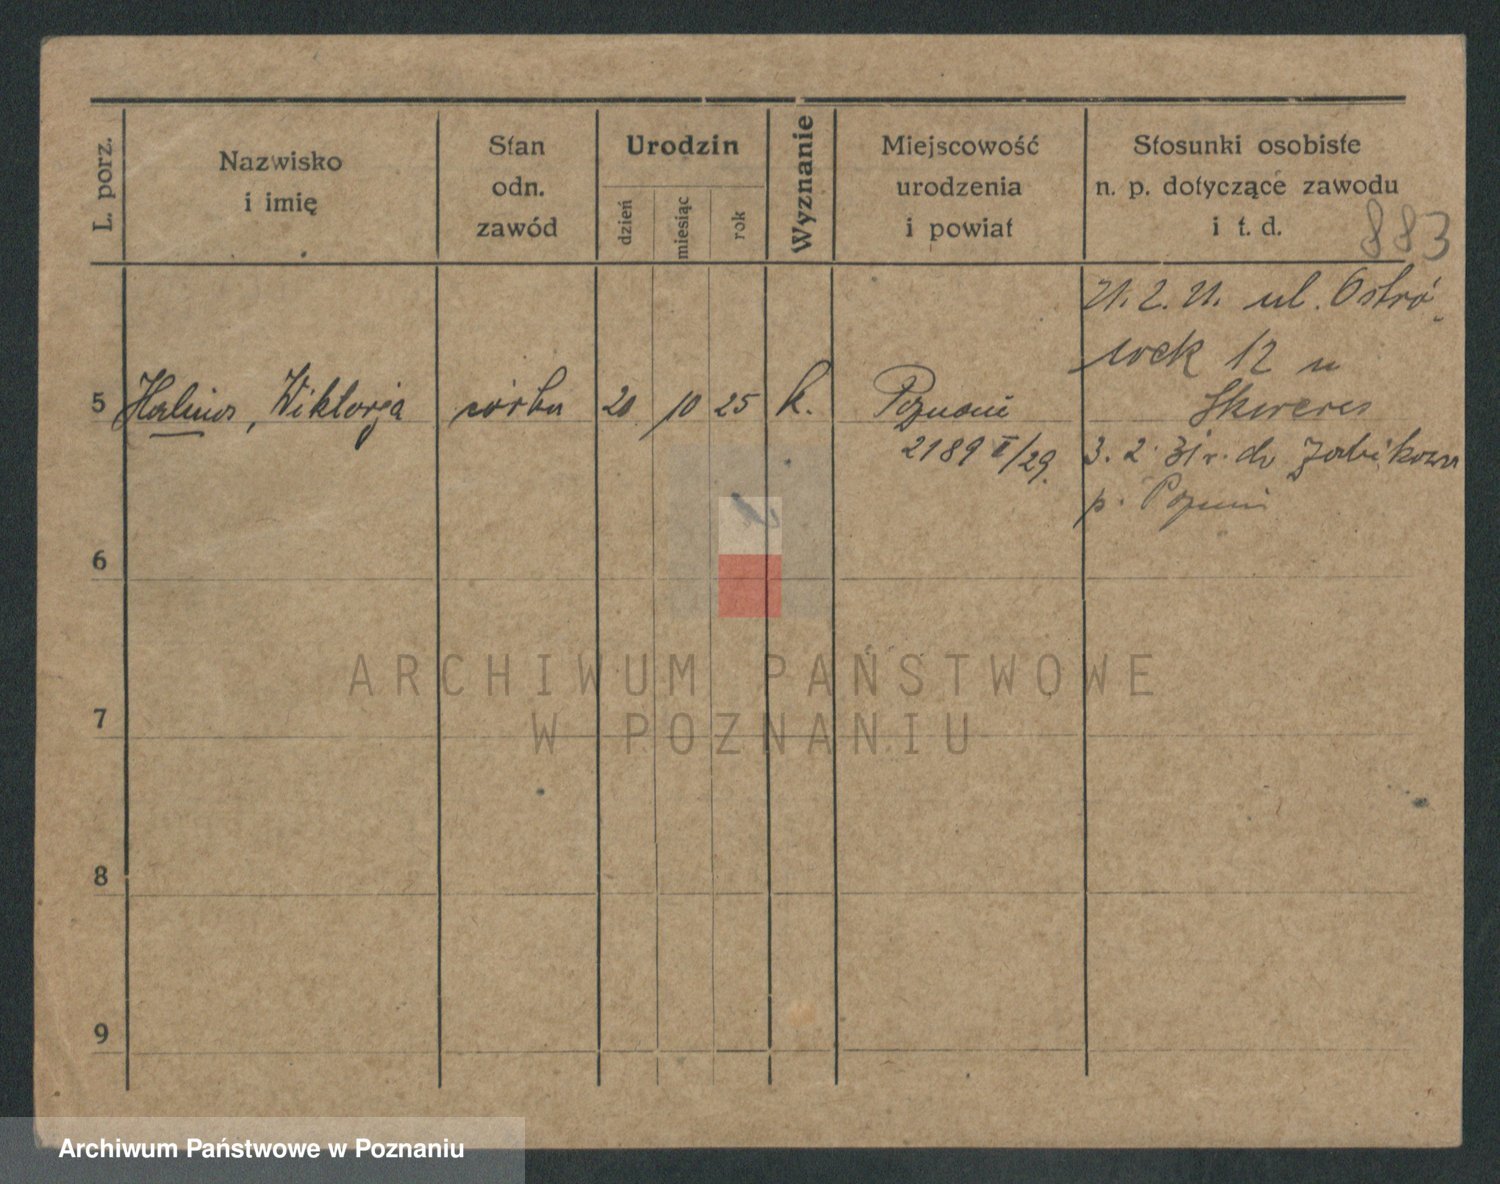 L. porz.
Nazwisko
i imię
Stan
odn.
zawód
Urodzin
dzień
miesiąc
rok
Wyznanie
Miejscowość
urodzenia
i powiat
Stosunki osobiste
n. p. dotyczące zawodu
i t. d.
883
ul. Ostró-
wek 12 u
5 Halina, Wiktorja córka 20 10 25 k. Poznań
2189 II/29.
3. 2. 31 r. do Żabikowa
p. Poznań
6
7
8
9
ARCHIWUM PAŃSTWOWE
W POZNANIU
Archiwum Państwowe w Poznaniu